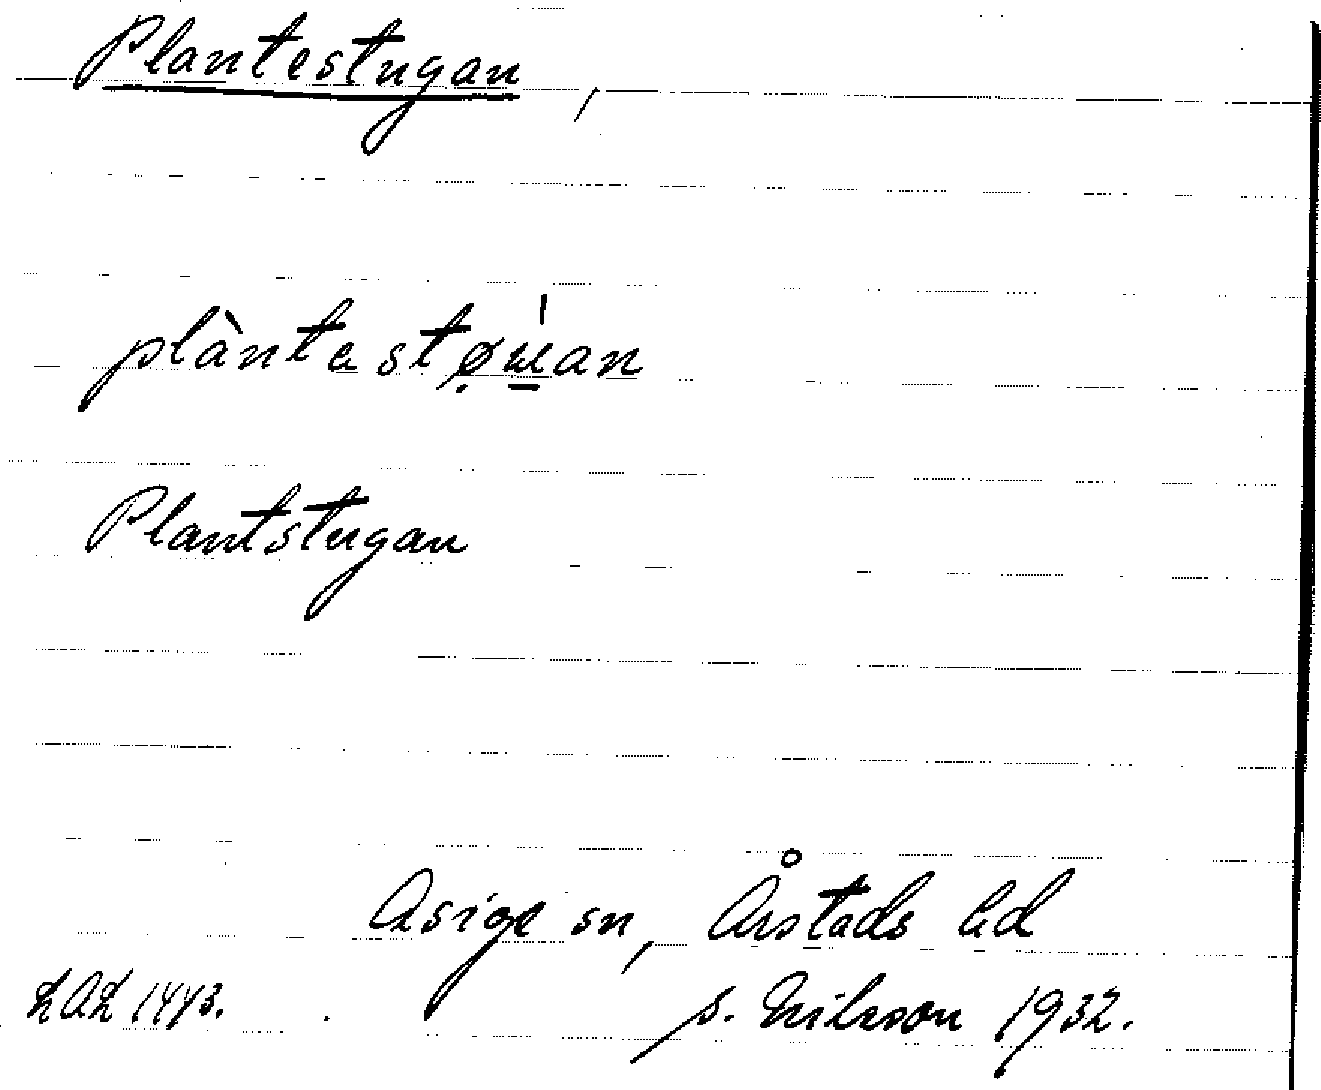 Plantestugan,
plàntestø̣u̲̍an
Plantstugan
Asige sn, Årstads hd
LAL 1443. S. Nilsson 1932.